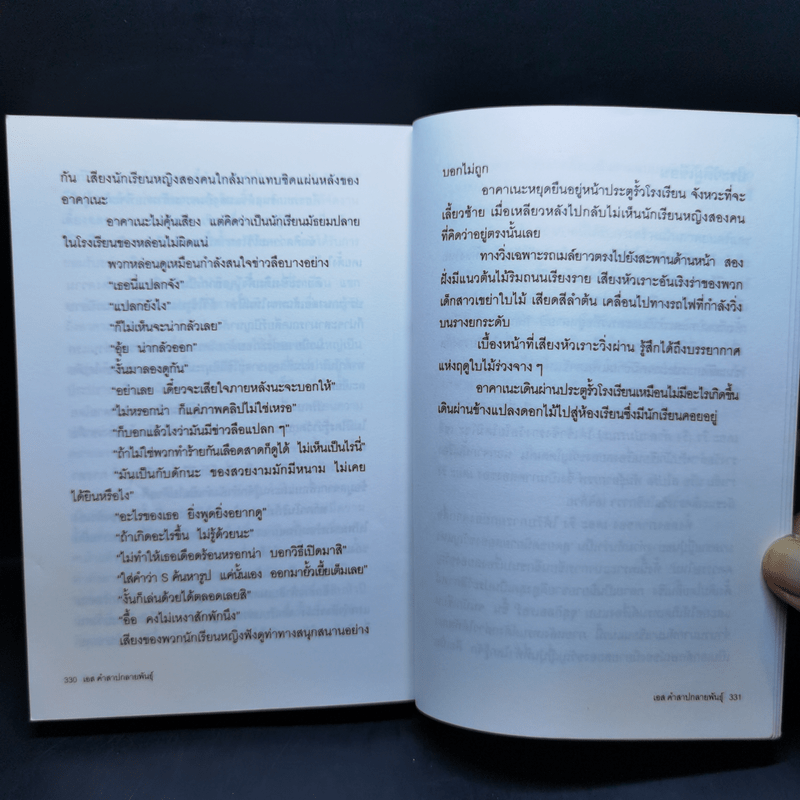 กัน เสียงนักเรียนหญิงสองคนใกล้มากแทบชิดแผ่นหลังของ
อาคาเนะ
อาคาเนะไม่คุ้นเสียง แต่คิดว่าเป็นนักเรียนมัธยมปลาย
ในโรงเรียนของหล่อนไม่ผิดแน่
พวกหล่อนดูเหมือนกำลังสนใจข่าวลือบางอย่าง
“เธอนี่แปลกจัง”
“แปลกยังไง”
“ก็ไม่เห็นจะน่ากลัวเลย”
“อุ้ย น่ากลัวออก”
“งั้นมาลองดูกัน”
“อย่าเลย เดี๋ยวจะเสียใจภายหลังนะจะบอกให้”
“ไม่หรอกน่า ก็แค่ภาพคลิปไม่ใช่เหรอ”
“ก็บอกแล้วไงว่ามันมีข่าวลือแปลก ๆ”
“ถ้าไม่ใช่พวกทำร้ายกันเลือดสาดก็ดูได้ ไม่เห็นเป็นไรนี่”
“มันเป็นกับดักนะ ของสวยงามมักมีหนาม ไม่เคย
ได้ยินหรือไง”
“อะไรของเธอ ยิ่งพูดยิ่งอยากดู”
“ถ้าเกิดอะไรขึ้น ไม่รู้ด้วยนะ”
“ไม่ทำให้เธอเดือดร้อนหรอกน่า บอกวิธีเปิดมาสิ”
“ใส่คำว่า S ค้นหารูป แค่นั้นเอง ออกมายั้วเยี้ยเต็มเลย”
“งั้นก็เล่นด้วยได้ตลอดเลยสิ”
“อื้อ คงไม่เหงาสักพักนึง”
เสียงของพวกนักเรียนหญิงฟังดูท่าทางสนุกสนานอย่าง
330 เอส คำสาปกลายพันธุ์
บอกไม่ถูก
อาคาเนะหยุดยืนอยู่หน้าประตูรั้วโรงเรียน จังหวะที่จะ
เลี้ยวซ้าย เมื่อเหลียวหลังไปกลับไม่เห็นนักเรียนหญิงสองคน
ที่คิดว่าอยู่ตรงนั้นเลย
ทางวิ่งเฉพาะรถเมล์ยาวตรงไปยังสะพานด้านหน้า สอง
ฝั่งมีแนวต้นไม้ริมถนนเรียงราย เสียงหัวเราะอันเริงร่าของพวก
เด็กสาวเขย่าใบไม้ เสียดสีลำต้น เคลื่อนไปทางรถไฟที่กำลังวิ่ง
บนรางยกระดับ
เบื้องหน้าที่เสียงหัวเราะวิ่งผ่าน รู้สึกได้ถึงบรรยากาศ
แห่งฤดูใบไม้ร่วงจาง ๆ
อาคาเนะเดินผ่านประตูรั้วโรงเรียนเหมือนไม่มีอะไรเกิดขึ้น
เดินผ่านข้างแปลงดอกไม้ไปสู่ห้องเรียนซึ่งมีนักเรียนคอยอยู่
เอส คำสาปกลายพันธุ์ 331